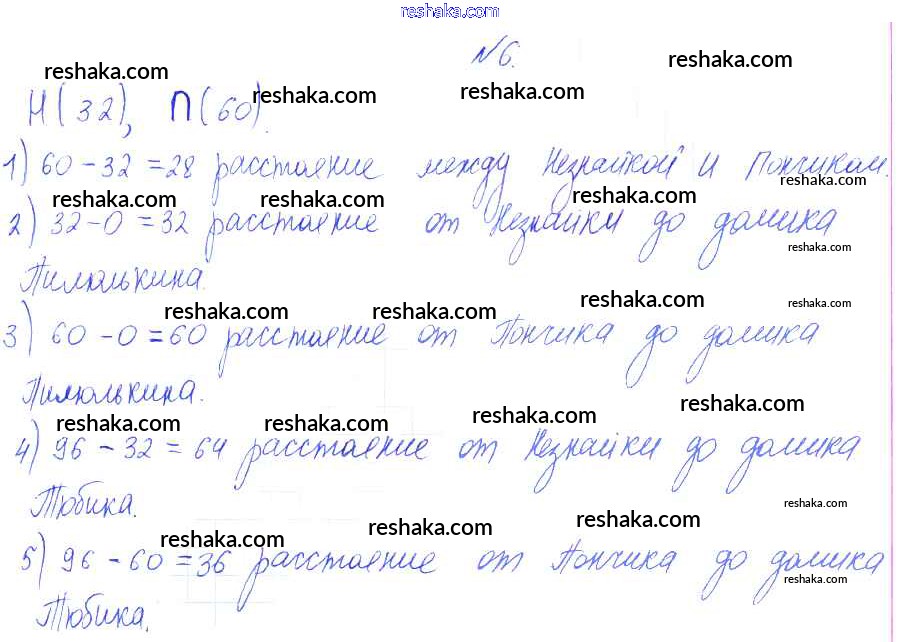 reshaka.com
№6.
reshaka.com reshaka.com
Н(32), П(60). reshaka.com reshaka.com
1) 60 - 32 = 28 расстояние между Незнайкой и Пончиком.
reshaka.com reshaka.com reshaka.com reshaka.com
2) 32 - 0 = 32 расстояние от Незнайки до домика
reshaka.com
Пилюлькина.
reshaka.com reshaka.com reshaka.com reshaka.com
3) 60 - 0 = 60 расстояние от Пончика до домика
Пилюлькина.
reshaka.com reshaka.com reshaka.com reshaka.com
4) 96 - 32 = 64 расстояние от Незнайки до домика
Тюбика.
reshaka.com
reshaka.com reshaka.com reshaka.com
5) 96 - 60 = 36 расстояние от Пончика до домика
reshaka.com
Тюбика.